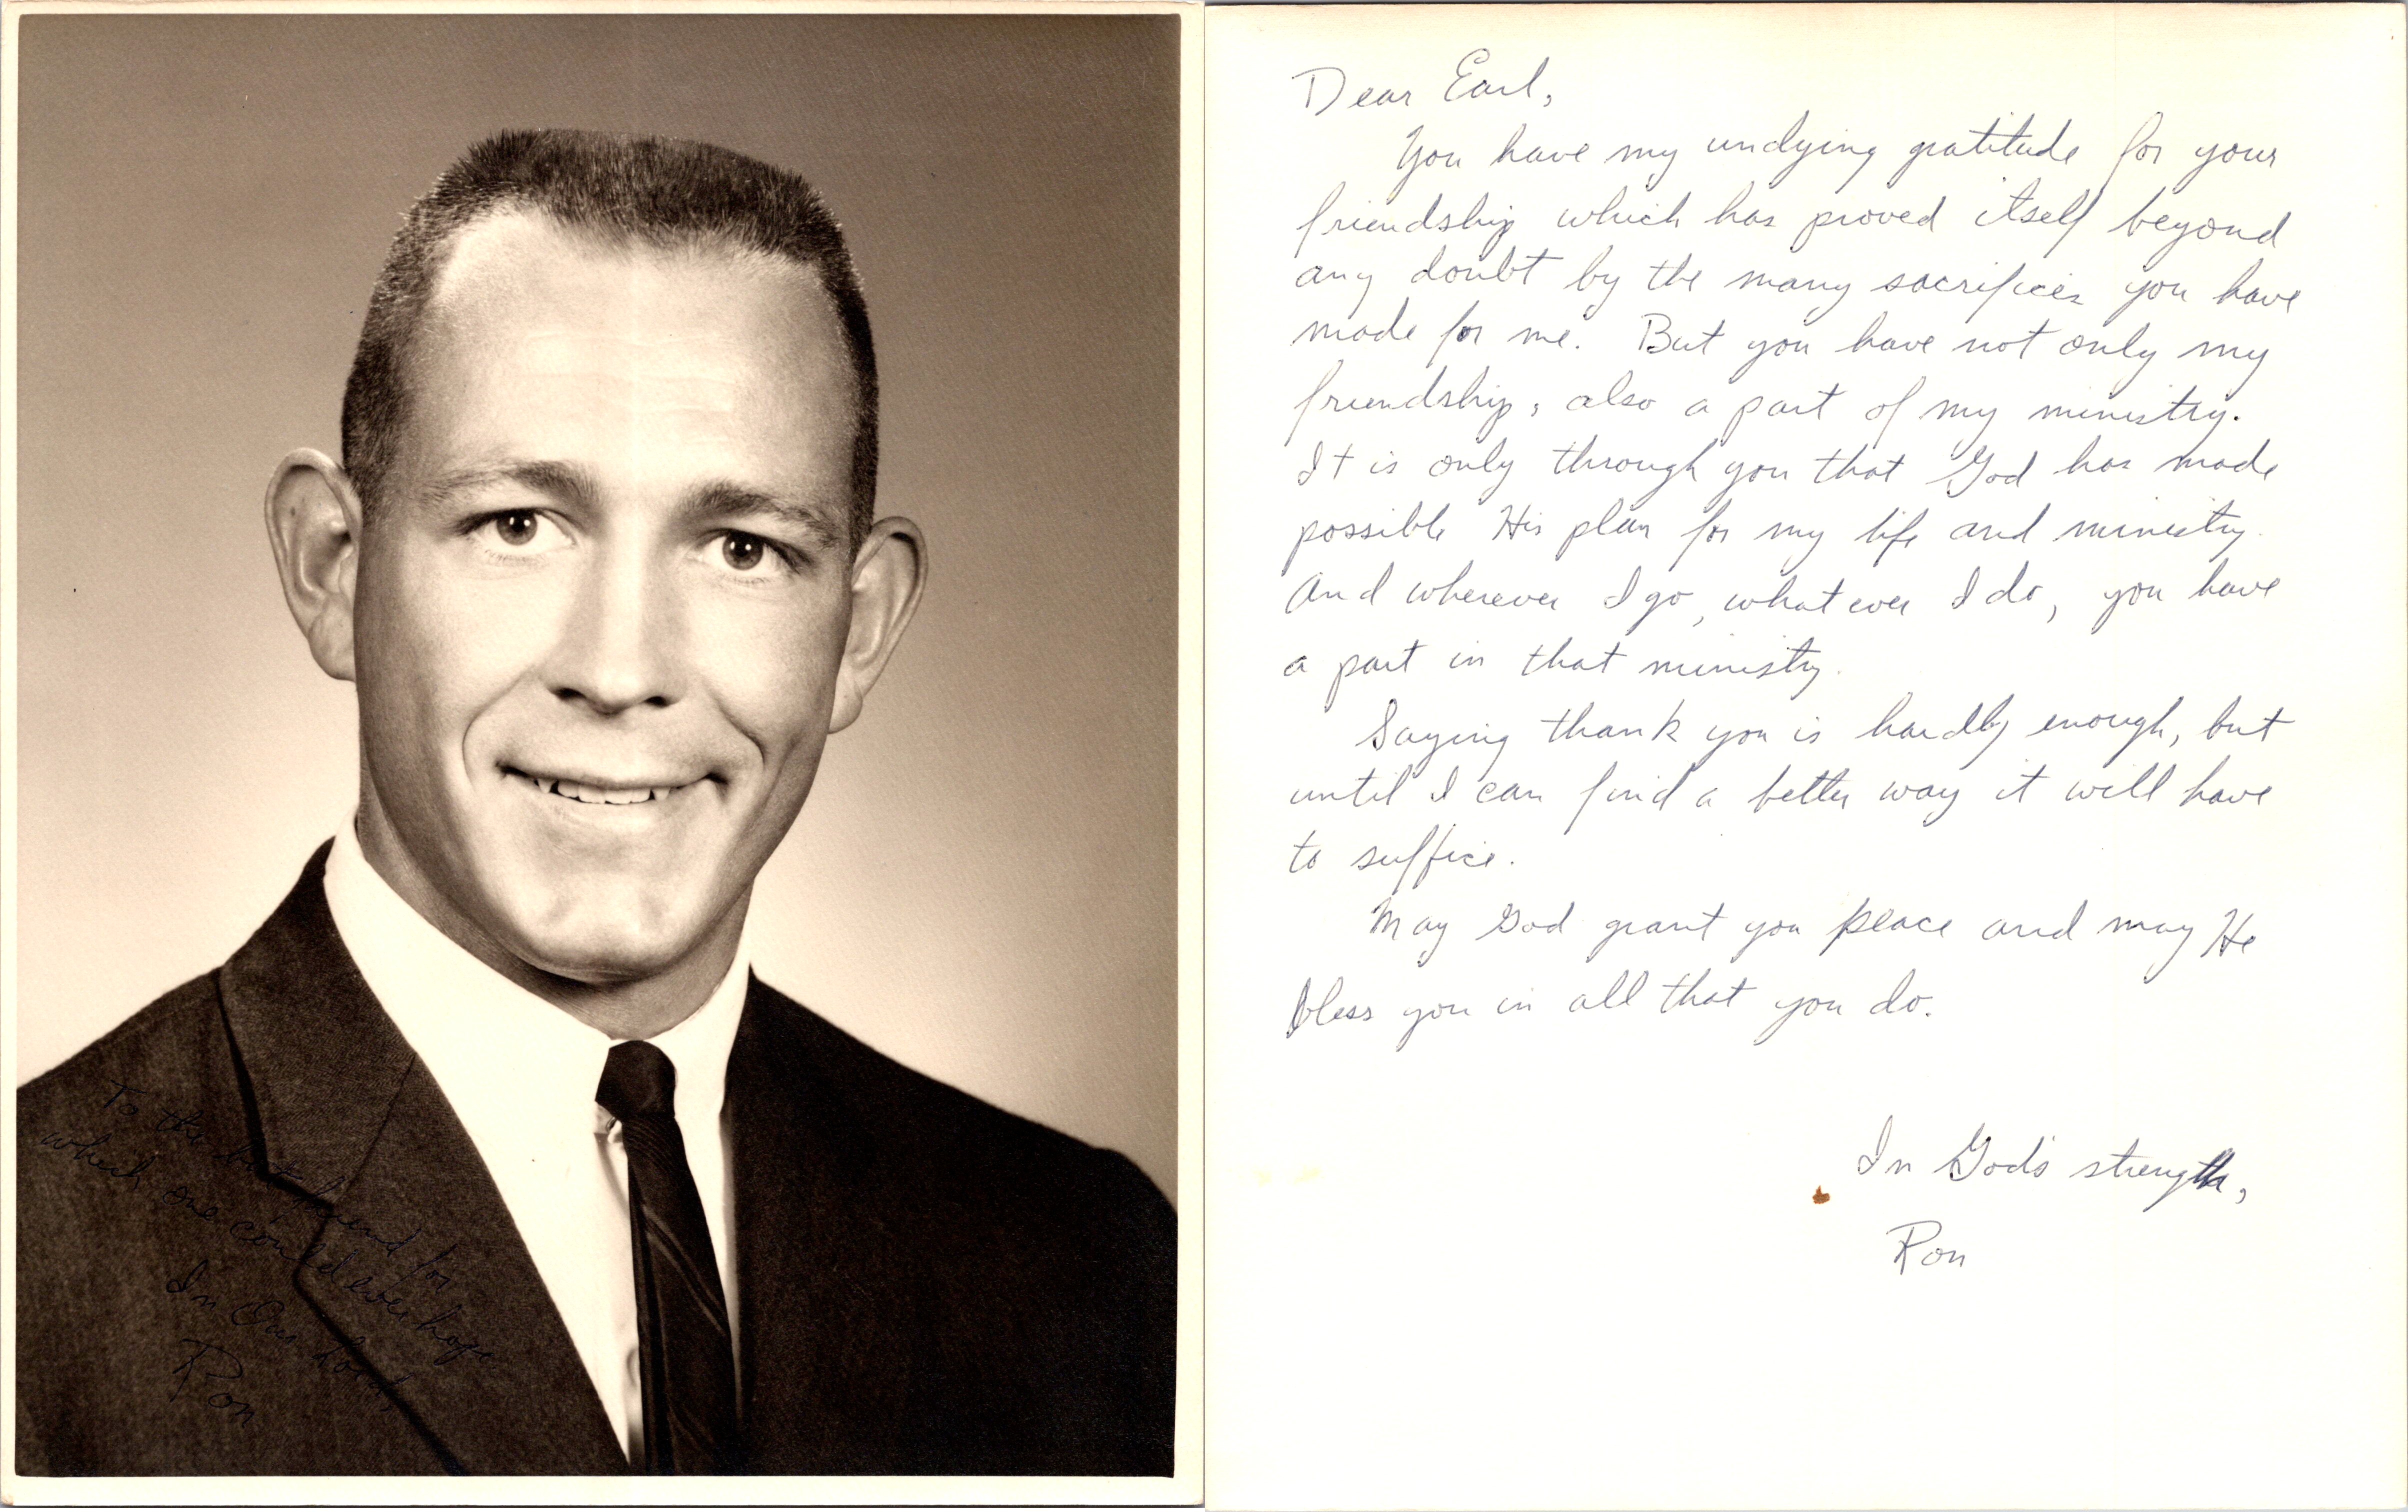 To the best friend for
which one could ever hope
In Our Lord,
Ron
Dear Earl,
You have my undying gratitude for your
friendship which has proved itself beyond
any doubt by the many sacrifices you have
made for me. But you have not only my
friendship, also a part of my ministry.
It is only through you that God has made
possible His plan for my life and ministry.
And wherever I go, whatever I do, you have
a part in that ministry.
Saying thank you is hardly enough, but
until I can find a better way it will have
to suffice.
May God grant you peace and may He
bless you in all that you do.
In God's strength,
Ron